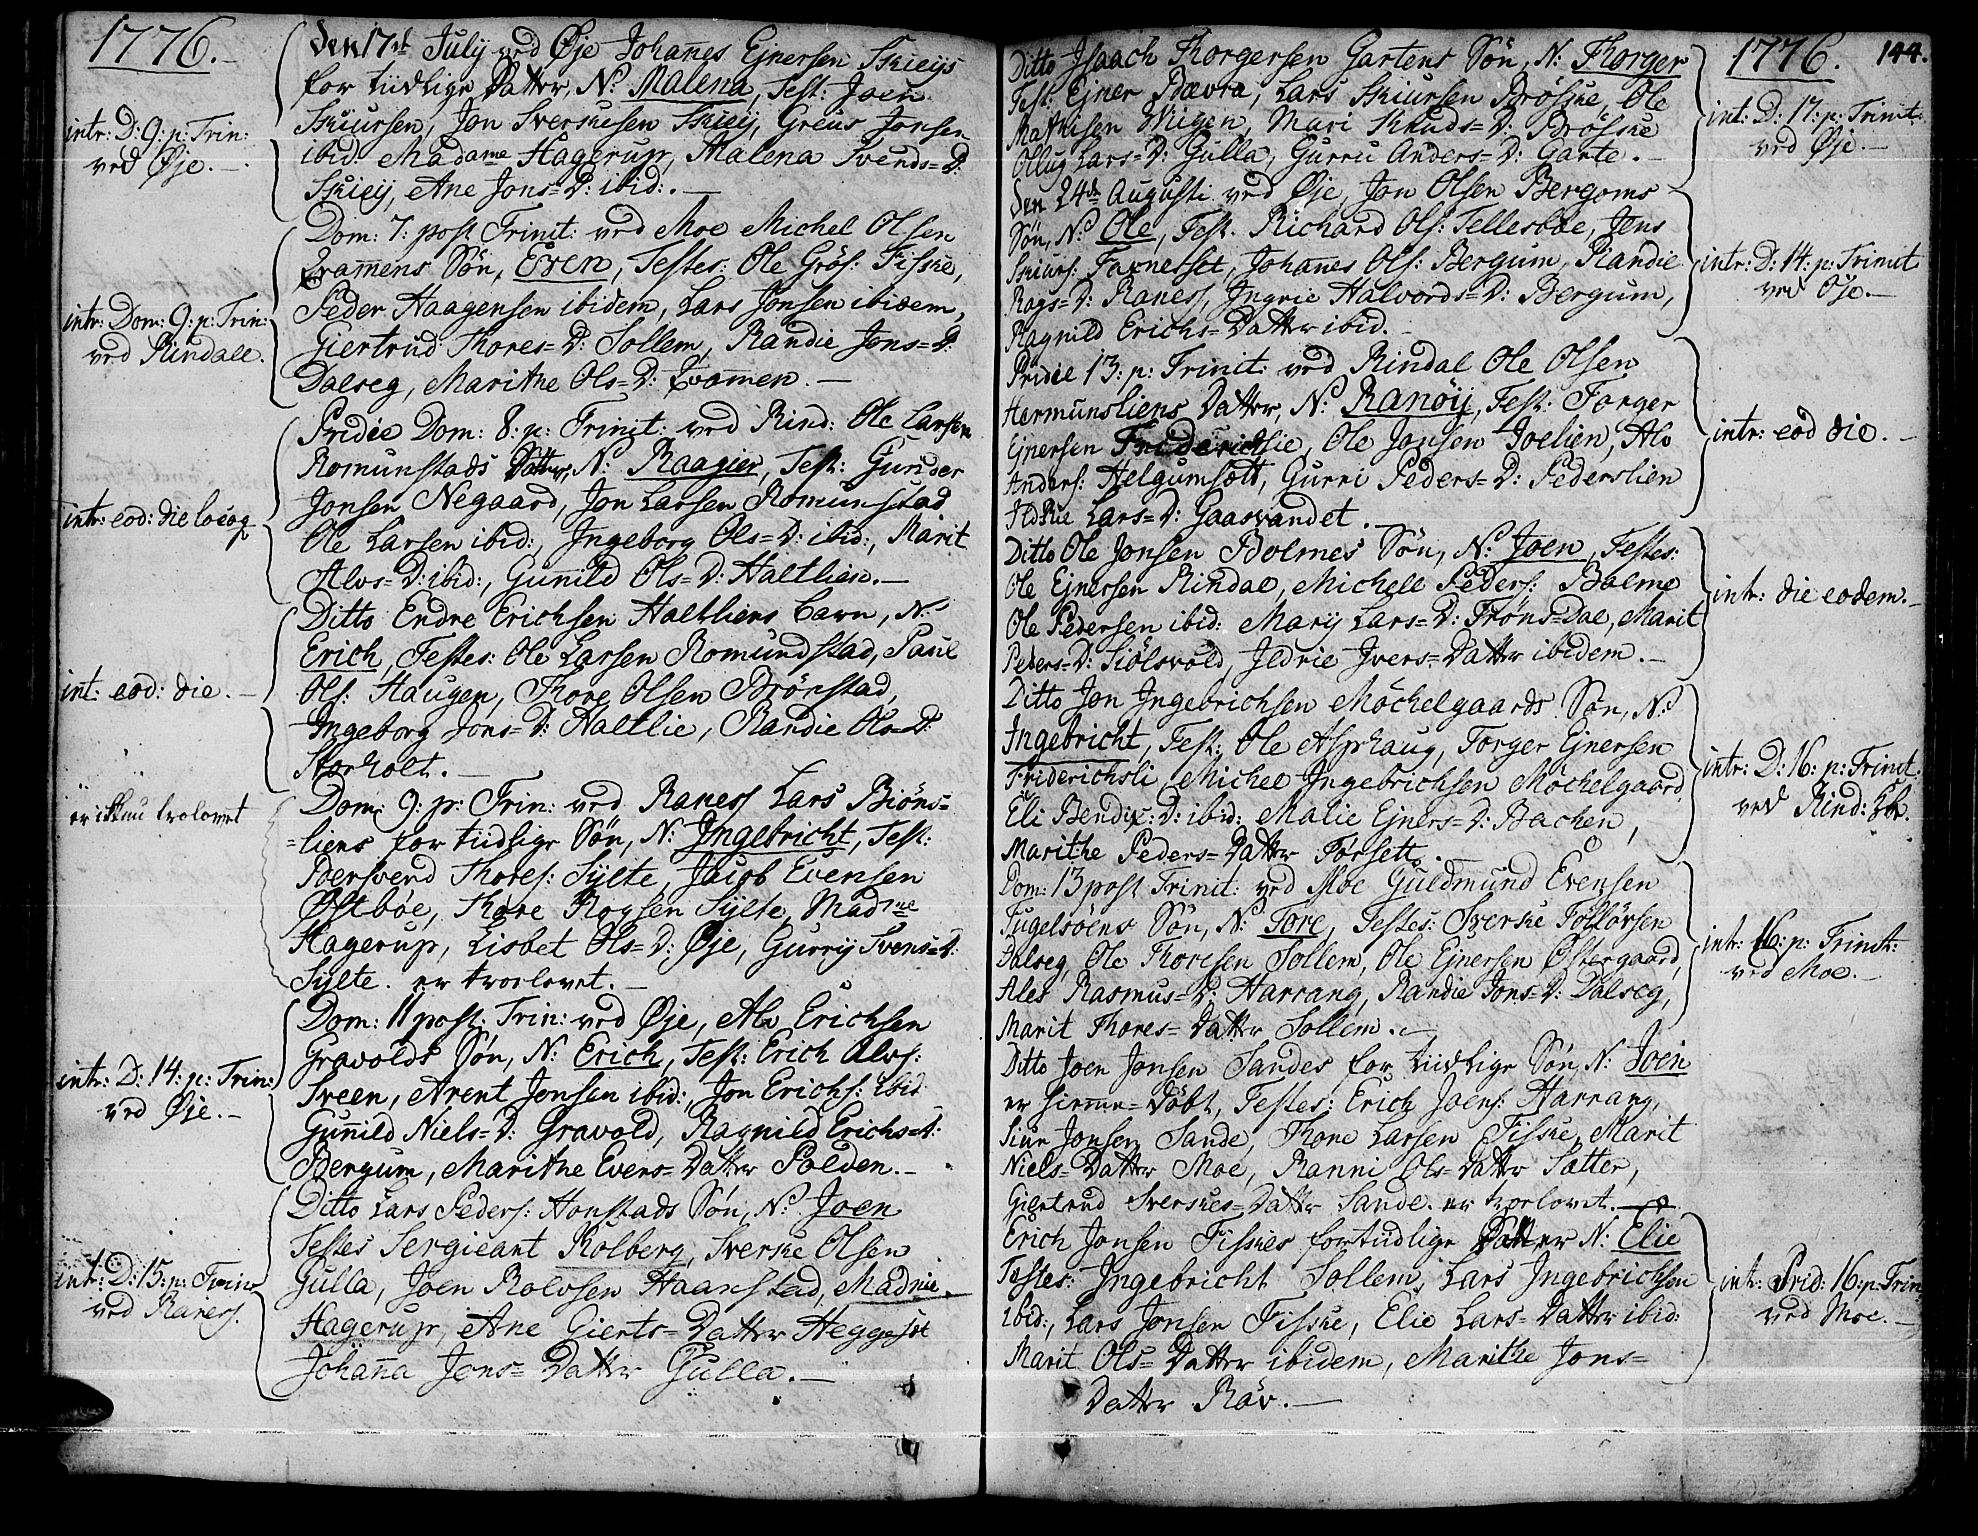 1776.
intr: D: 9: p: Trin:
ved Øje.
Den 17de Julij ved Øje Johannes Ejnersen Skieijs
for tiidlige Datter, N: Malena, Test: Joen
Skiursen, Jon Sverkesen Skieij, Greus Jonsen
ibid. Madame Hagerup, Malena Svends=D:
Skieij, Ane Jons=D: ibid:
intr: Dom: 9: p: Trin:
ved Rindale.
Dom: 7: post Trinit: ved Moe Michel Olsen
Qvammens Søn, Even, Testes: Ole Grös: Fiske,
Peder Haagensen ibidem, Lars Jonsen ibidem,
Giertrud Thores=D: Sollem, Randie Jons=D:
Dalseg, Marithe Ols=D: Qvamen.
intr: eod: die locoq
Pridie Dom: 8: p: Trinit: ved Rind: Ole Larsen
Romunstads Datter, N: Raagier, Test: Gunder
Jonsen Negaard, Jon Larsen Romunstad
Ole Larsen ibid:, Ingeborg Ols=D: ibid:, Marit
Alvs=D: ibid:, Gunnild Ols=D: Haltlien.
int: eod: die.
Ditto Endre Erichsen Haltliens barn, N:
Erich, Testes: Ole Larsen Romundstad, Paul
Ols: Haugen, Thore Olsen Brönstad,
Ingeborg Jons=D: Haltlie, Randie Ols=D:
Storholt.
er ikkun trolovet
Dom: 9: p: Trin: ved Raness Lars Biöns=
=liens for tiidlige Søn, N: Ingebricht, Test:
Boersvend Thores: Sylte, Jacob Evensen
Østböe, Thore Roysen Sylte, Madme
Hagerup, Lisbet Ols=D: Øje, Gurrij Svens=D:
Sylte. er trolovet.
intr: D: 14: p: Trin:
ved Øje.
Dom: 11 post: Trin: ved Øje, Alv Erichsen
Gravolds Søn, N: Erich, Test: Erich Alvs:
Sveen, Arent Jonsen ibid:, Jon Erichs: ibid
Gunnild Niels=D: Gravold, Ragnild Erichs=D:
Bergum, Marithe Evers=Datter Polden.
int: D: 15: p: Trin:
ved Raness.
Ditto Lars Peders: Honstads Søn, N: Joen
Testes Sergieant Kolberg, Sverke Olsen
Gulla, Joen Rolvsen Haanstad, Madme.
Hagerup, Ane Gierts=Datter Heggeset
Johanna Jons=Datter Gulla.
1776. 144.
Ditto Isaach Thorgersen Gartens Søn, N: Thorger
Test: Ejner Bævra, Lars Skiursen Bröske, Ole
Mathisen Wiigen, Mari Knuds=D: Bröske
Ollug Lars=D: Gulla, Gurru Anders=D: Garte.
int: D: 17: p: Trinit:
ved Øje.
Den 24de Augusti ved Øje, Jon Olsen Bergoms
Søn, N: Ole, Test. Richard Ols: Tellesböe, Jens
Skiurs: Farnesset, Johanes Ols: Bergum, Randie
Rags=D: Raness, Ingrie Halvords=D: Bergum,
Ragnild Erichs=Datter ibid.
intr: D: 14: p: Trinit
ved Øje.
Pridie 13: p: Trinit: ved Rindal Ole Olsen
Hermunsliens Datter, N: Ranöij, Test: Torger
Ejnersen Friderichslie, Ole Jonsen Joelien, Alv
Anders: Helgumsött, Gurri Peders=D: Pederslien
Ildrie Lars=D: Gaasvandet.
intr: eod die.
Ditto Ole Jonsen Bolmes Søn, N: Joen, Testes:
Ole Ejnersen Rindal, Michell Peders: Bolme
Ole Pedersen ibid: Marij Lars=D: Tröns=Dal, Marit
Peders=D: Siölsvold, Ildrie Ivers=Datter ibidem.
intr: die eodem.
Ditto Jon Ingebrichsen Möchelgaards Søn, N:
Ingebricht, Test: Ole Asphaug, Torger Ejnersen
Friderichsli, Michel Ingebrichsen Möchelgaard,
Eli Bendix:D: ibid: Malie Ejners=D: Bachen,
Marithe Peders=Datter Torsett.
intr: D: 16: p: Trinit
ved Rind:
Dom: 13 post Trinit: ved Moe Guldmund Evensen
Fugelsöens Søn, N: Tore, Testes: Sverke Tollövsen
Dalseg, Ole Thoresen Sollem, Ole Ejnersen Østergaard,
Ales Rasmus=D: Harrang, Randie Jons=D: Dalseg,
Marit Thores=Datter Sollem.
intr: 16: p: Trinit:
ved Moe.
Ditto Joen Jonsen Sandes for tiidlige Søn, N: Joen
er hiemme=døbt, Testes: Erich Joens: Harrang,
Siur Jonsen Sande, Thore Larsen Fiske, Marit
Niels=Datter Moe, Ranni Ols=Datter Sætter,
Giertrud Sverkes=Datter Sande. er trolovet.
Erich Jonsen Fiskes fortiidlige Datter N: Elie
Testes: Ingebricht Sollem, Lars Ingebrichsen
ibid:, Lars Jonsen Fiske, Elie Lars=Datter ibid:
Marit Ols=Datter ibidem, Marithe Jons=
Datter Räv.
int: Prid: 16: p: Trin
ved Moe.